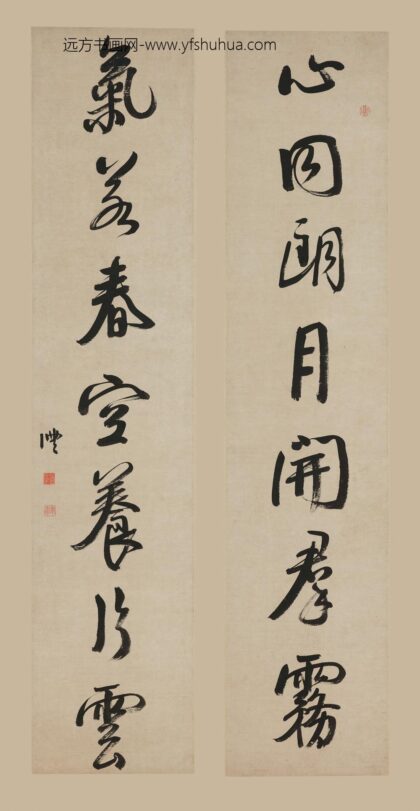 远方书画网-www.yfshuhua.com
心同朗月開羣霧
氣若春空養行雲